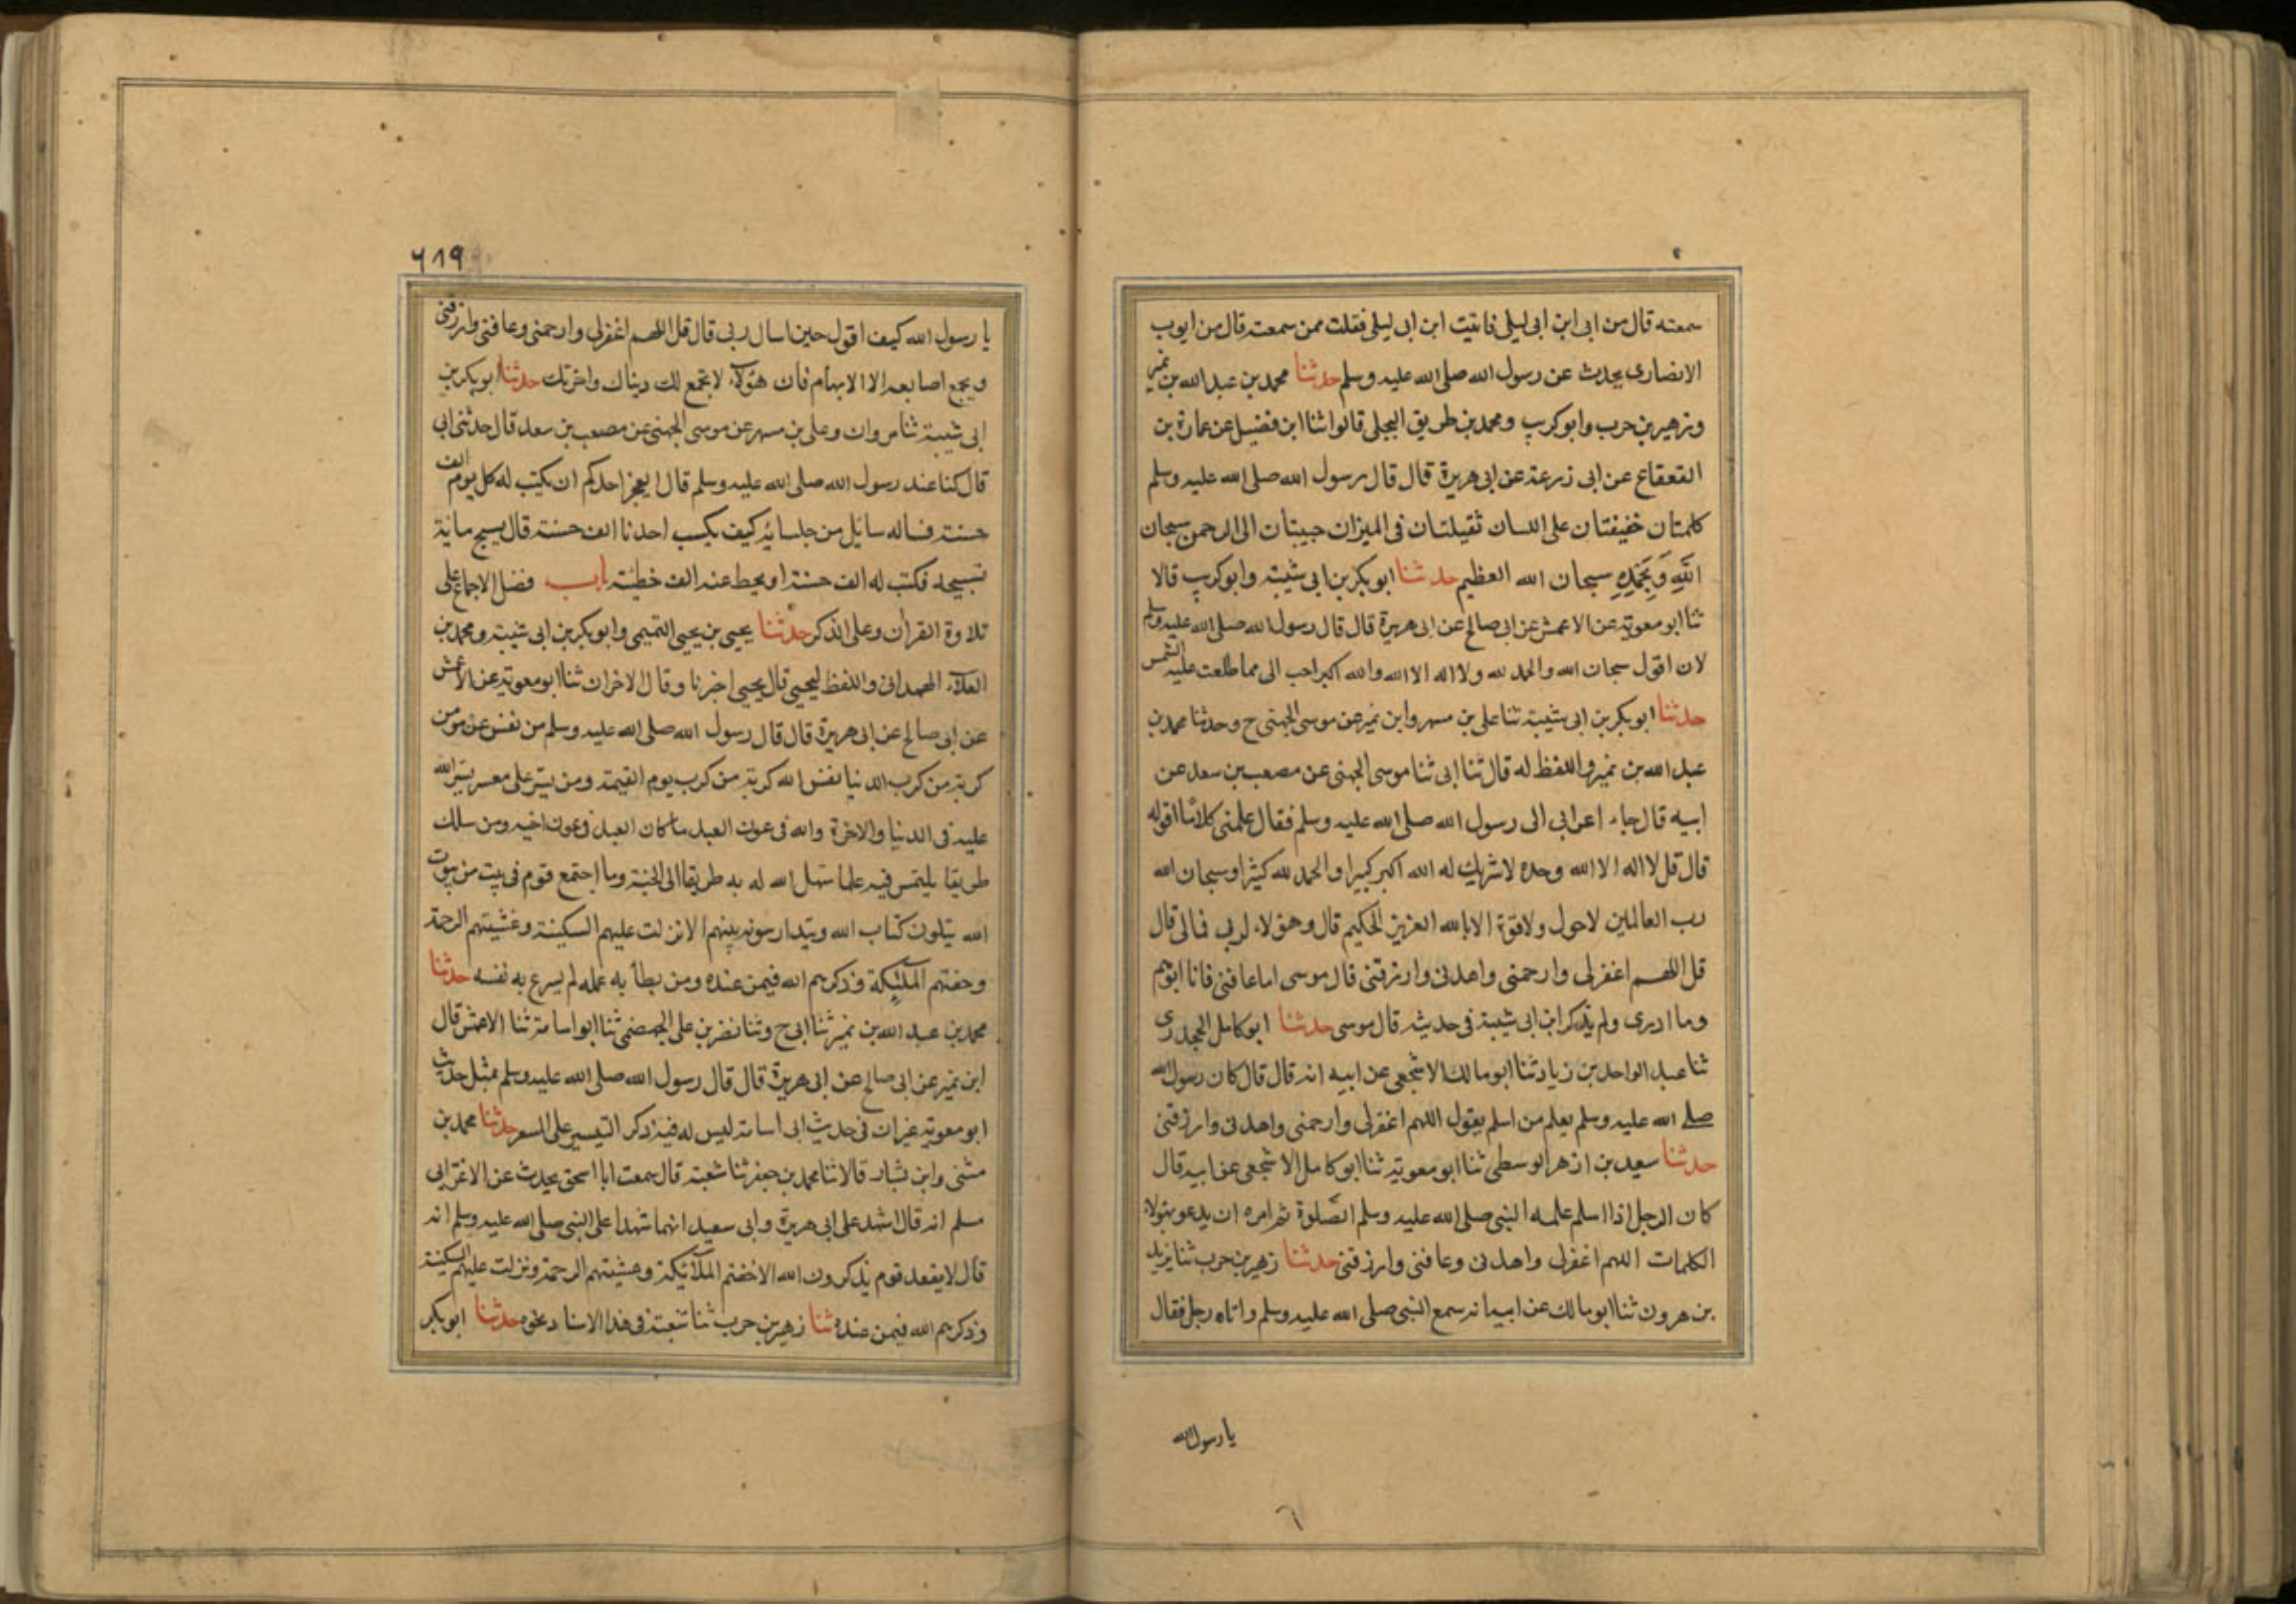 سمعته قال من ابى ابن ابى ليلى فاتيت ابن ابى ليلى فقلت ممن سمعته قال من ايوب
الانصارى يحدث عن رسول الله صلى الله عليه وسلم حدثنا محمد بن عبد الله بن نمير
وزهير بن حرب وابو كريب ومحمد بن طريق البجلى قالوا ثنا ابن فضيل عن عمارة بن
القعقاع عن ابى زرعة عن ابى هريرة قال قال رسول الله صلى الله عليه وسلم
كلمتان خفيفتان على اللسان ثقيلتان فى الميزان حبيبتان الى الرحمن سبحان
الله وبحمده سبحان الله العظيم حدثنا ابو بكر بن ابى شيبة وابو كريب قالا
ثنا ابو معوية عن الاعمش عن ابى صالح عن ابى هريرة قال قال رسول الله صلى الله عليه وسلم
لان اقول سبحان الله والحمد لله ولا اله الا الله والله اكبر احب الى مما طلعت عليه الشمس
حدثنا ابو بكر بن ابى شيبة ثنا على بن مسهر وابن نمير عن موسى الجهنى ح وحدثنا محمد بن
عبد الله بن نمير واللفظ له قال ثنا ابى ثنا موسى الجهنى عن مصعب بن سعد عن
ابيه قال جاء اعرابى الى رسول الله صلى الله عليه وسلم فقال علمنى كلاما اقوله
قال قل لا اله الا الله وحده لا شريك له الله اكبر كبيرا والحمد لله كثيرا وسبحان الله
رب العالمين لاحول ولاقوة الا بالله العزيز الحكيم قال وهؤلاء لربى فمالى قال
قل اللهم اغفرلى وارحمنى واهدنى وارزقنى قال موسى اما عافنى فانا اتوهم
وما ادرى ولم يذكر ابن ابى شيبة فى حديثه قال موسى حدثنا ابو كامل الجحدرى
ثنا عبد الواحد بن زياد ثنا ابو مالك الاشجعى عن ابيه انه قال قال كان رسول الله
صلى الله عليه وسلم يعلم من اسلم يقول اللهم اغفرلى وارحمنى واهدنى وارزقنى
حدثنا سعيد بن ازهر الوسطى ثنا ابو معوية ثنا ابو كامل الاشجعى عن ابيه قال
كان الرجل اذا اسلم علمه النبى صلى الله عليه وسلم الصلوة ثم امره ان يدعو بهؤلاء
الكلمات اللهم اغفرلى واهدنى وعافنى وارزقنى حدثنا زهير بن حرب ثنا يزيد
بن هرون ثنا ابو مالك عن ابيه انه سمع النبى صلى الله عليه وسلم واتاه رجل فقال
يا رسول الله
٦
٦١٩
يا رسول الله كيف اقول حين اسال ربى قال قل اللهم اغفرلى وارحمنى وعافنى وارزقنى
ويجمع اصابعه الا الابهام فان هؤلاء لا تجمع لك دنياك واخرتك حدثنا ابو بكر بن
ابى شيبة ثنا مروان وعلى بن مسهر عن موسى الجهنى عن مصعب بن سعد قال حدثنى ابى
قال كنا عند رسول الله صلى الله عليه وسلم قال ايعجز احدكم ان يكتب له كل يوم الف
حسنة فساله سايل من جلسائه كيف يكسب احدنا الف حسنة قال يسبح ماية
تسبيحه فكتب له الف حسنة او يحط عنه الف خطئته باب فضل الاجماع على
تلاوة القران وعلى الذكر حدثنا يحيى بن يحيى التميمى وابو بكر بن ابى شيبة ومحمد بن
العلاء الهمدانى واللفظ ليحيى قال يحيى اخبرنا وقال الاخران ثنا ابو معوية عن الاعمش
عن ابى صالح عن ابى هريرة قال قال رسول الله صلى الله عليه وسلم من نفس عن مومن
كربة من كرب الدنيا نفس الله كربة من كرب يوم القيمة ومن يسر على معسر يسر الله
عليه فى الدنيا والاخرة والله فى عون العبد ما كان العبد فى عون اخيه ومن سلك
طريقا يلتمس فيه علما سهل الله له به طريقا الى الجنة وما اجتمع قوم فى بيت من بيوت
الله يتلون كتاب الله ويتدارسونه بينهم الا نزلت عليهم السكينة وغشيتهم الرحمة
وحفتهم الملئكة وذكرهم الله فيمن عنده ومن بطأ به عمله لم يسرع به نفسه حدثنا
محمد بن عبد الله بن نمير ثنا ابى ح وثنا نضر بن على الجهضمى ثنا ابو اسامة ثنا الاعمش قال
ابن نمير عن ابى صالح عن ابى هريرة قال قال رسول الله صلى الله عليه وسلم بمثل حديث
ابو معوية غير ان فى حديث ابى اسامة ليس له فيه ذكر التيسير على المعسر حدثنا محمد بن
مثنى وابن بشار قالا ثنا محمد بن جعفر ثنا شعبة قال سمعت ابا اسحق يحدث عن الاغر ابى
مسلم انه قال اشهد على ابى هريرة وابى سعيد انهما شهدا على النبى صلى الله عليه وسلم انه
قال لا يقعد قوم يذكرون الله الا حفتهم الملائيكة وغشيتهم الرحمة ونزلت عليهم السكينة
وذكرهم الله فيمن عنده ثنا زهير بن حرب ثنا شعبة فى هذا الاسناد نحوه حدثنا ابو بكر